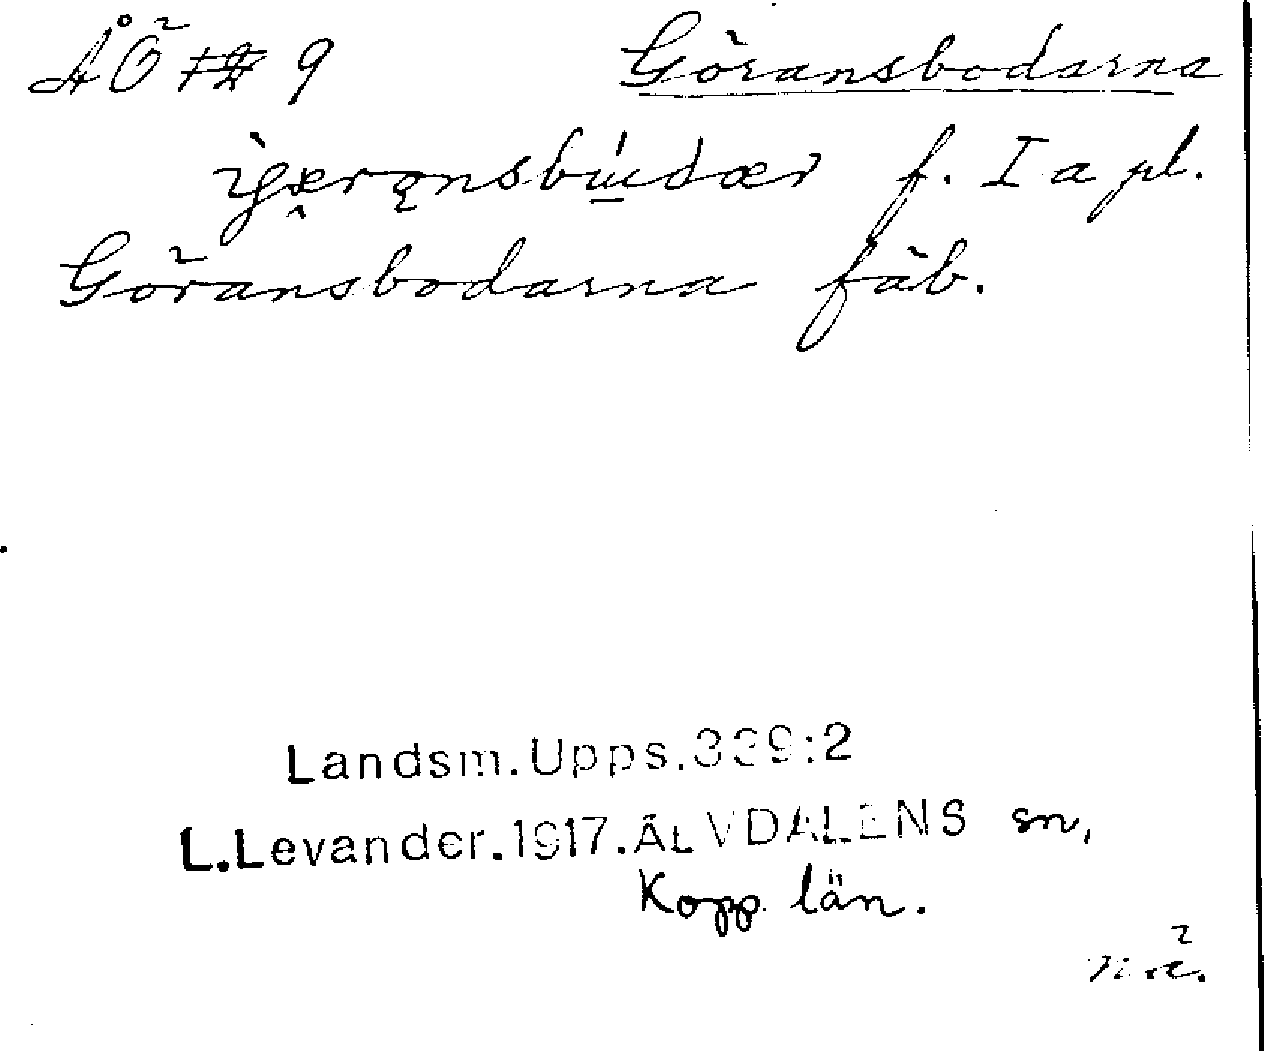 ÅÖ 9 Göransbodarna
f. I a pl.
Göransbodarna fäb.
Landsm.Upps.339:2
L.Levander.1917.ÄLVDALENS sn,
Kopp. län.